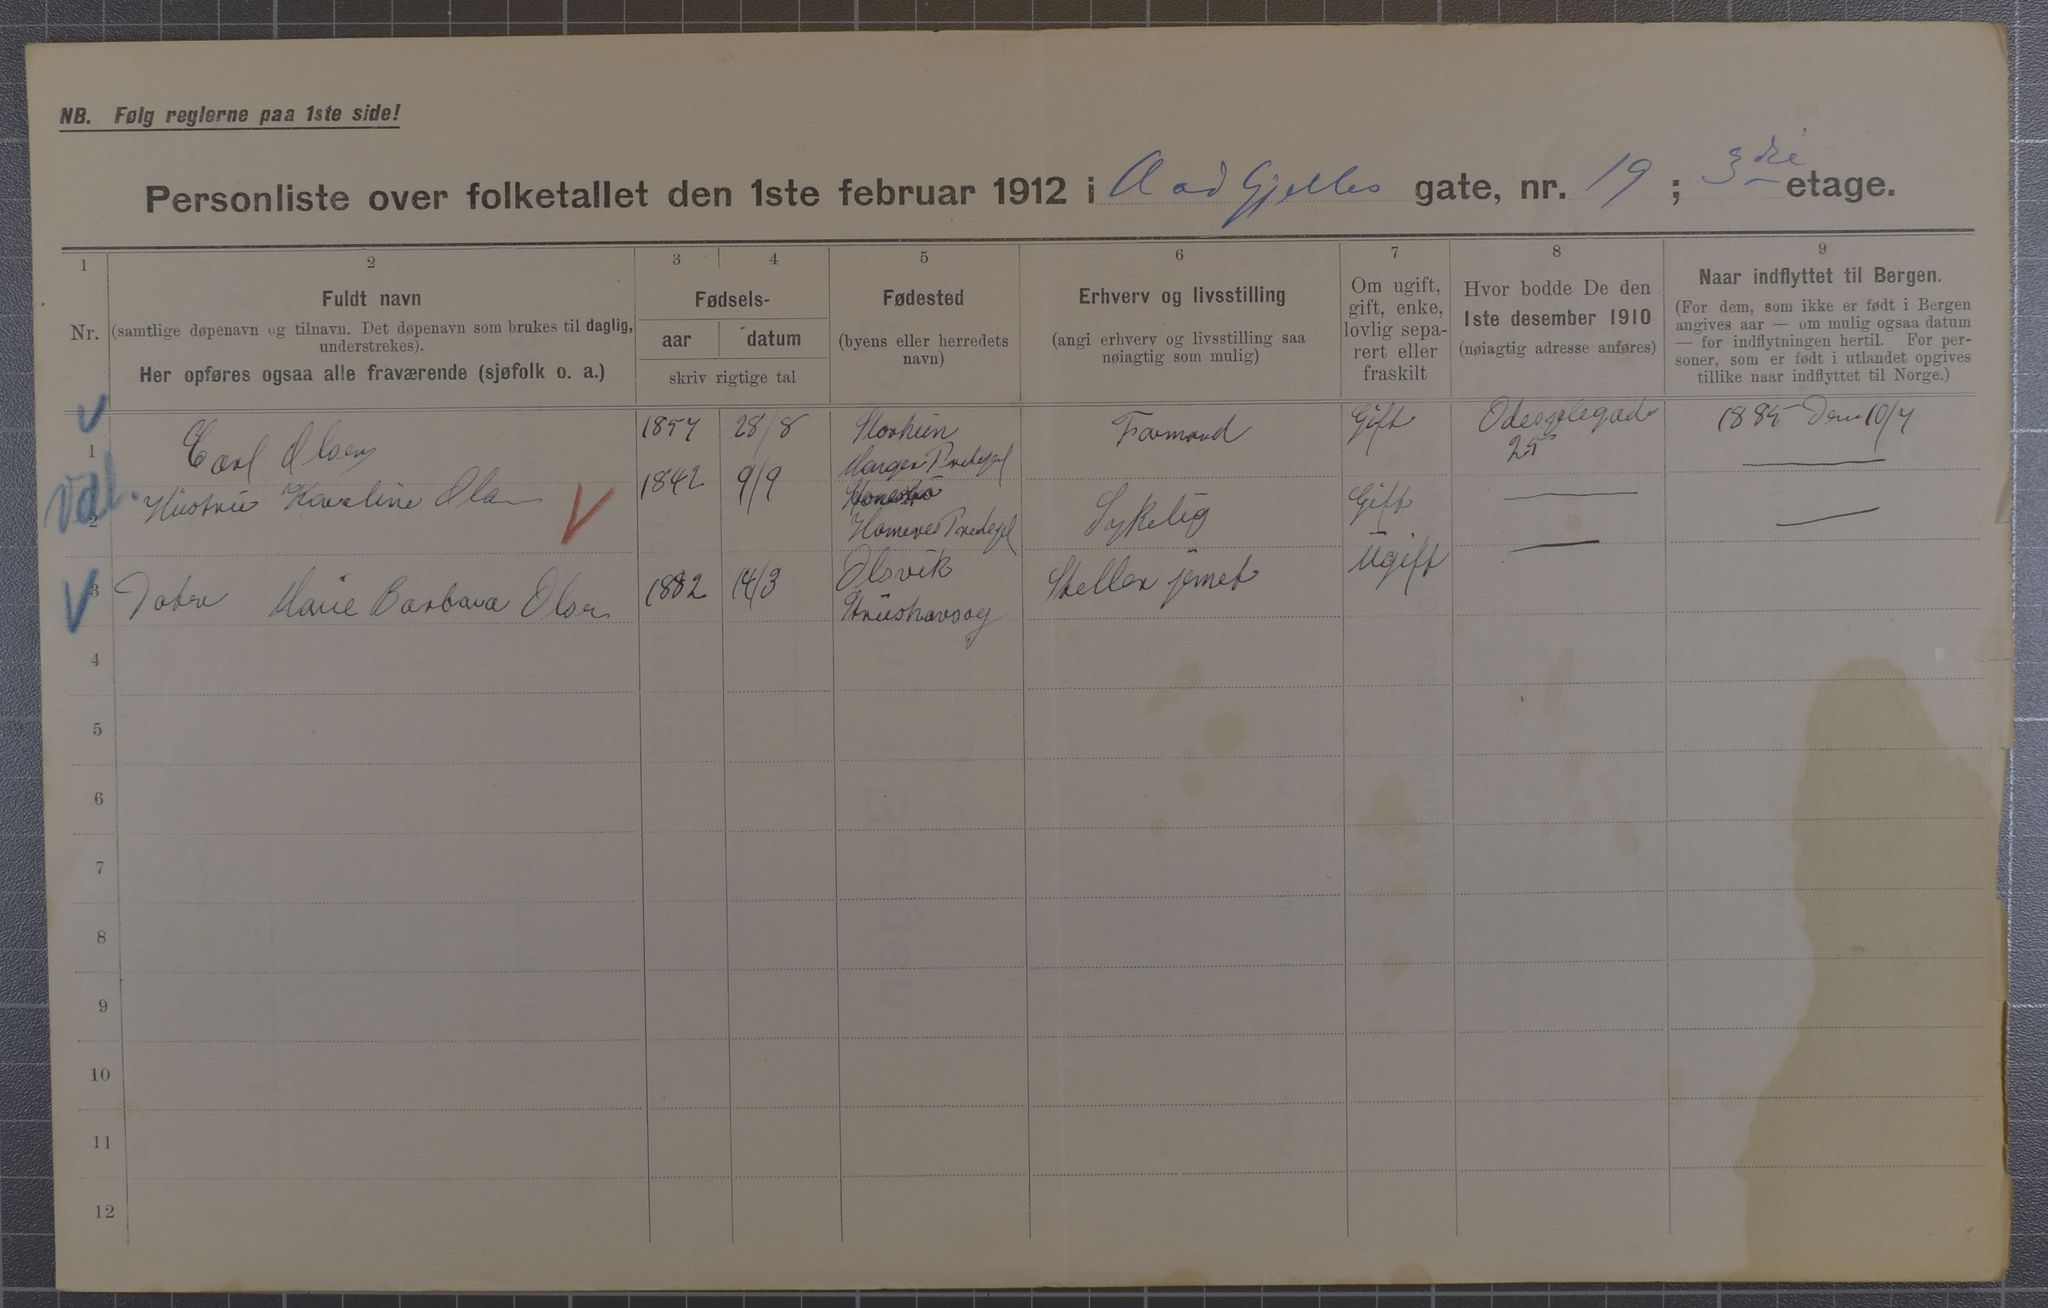 NB. Følg reglerne paa 1ste side!
Personliste over folketallet den 1ste februar 1912 i Aad Gjelles gate, nr. 19 ; 3die etage.
1 2 3 4 5 6 7 8 9
Nr.
Fuldt navn
(samtlige døpenavn og tilnavn. Det døpenavn som brukes til daglig,
understrekes).
Her opføres ogsaa alle fraværende (sjøfolk o. a.)
Fødsels-
aar datum
skriv rigtige tal
Fødested
(byens eller herredets
navn)
Erhverv og livsstilling
(angi erhverv og livsstilling saa
nøiagtig som mulig)
Om ugift,
gift, enke,
lovlig sepa-
rert eller
fraskilt
Hvor bodde De den
1ste desember 1910
(nøiagtig adresse anføres)
Naar indflyttet til Bergen.
(For dem, som ikke er født i Bergen
angives aar — om mulig ogsaa datum
— for indflytningen hertil. For per-
soner, som er født i utlandet opgives
tillike naar indflyttet til Norge.)
1 Carl Olsen 1857 28/8 Formand Gift 25 1885 10/7
2 Hustru Karoline Olsen 1842 9/9 Sykelig Gift
3 Dater Marie Barbara Olsen 1882 14/3 Olsvik Ugift
4
5
6
7
8
9
10
11
12